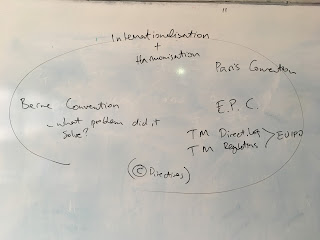 Internationalisation
+
Harmonisation
Paris Convention
Berne Convention
- what problem did it
solve?
E.P.C.
TM Directives
TM Regulations
EUIPO
(© Directives)